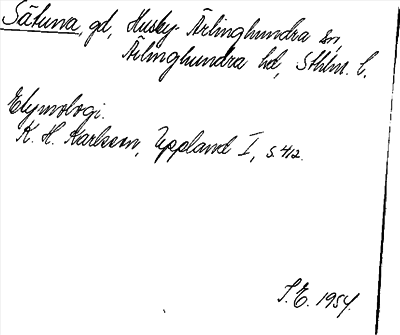 Såtuna, gd, Husby-Ärlinghundra sn,
Ärlinghundra hd, Sthlm. l.
Etymologi.
K. H. Karlsson, Uppland I, s. 412.
S.E. 1954.